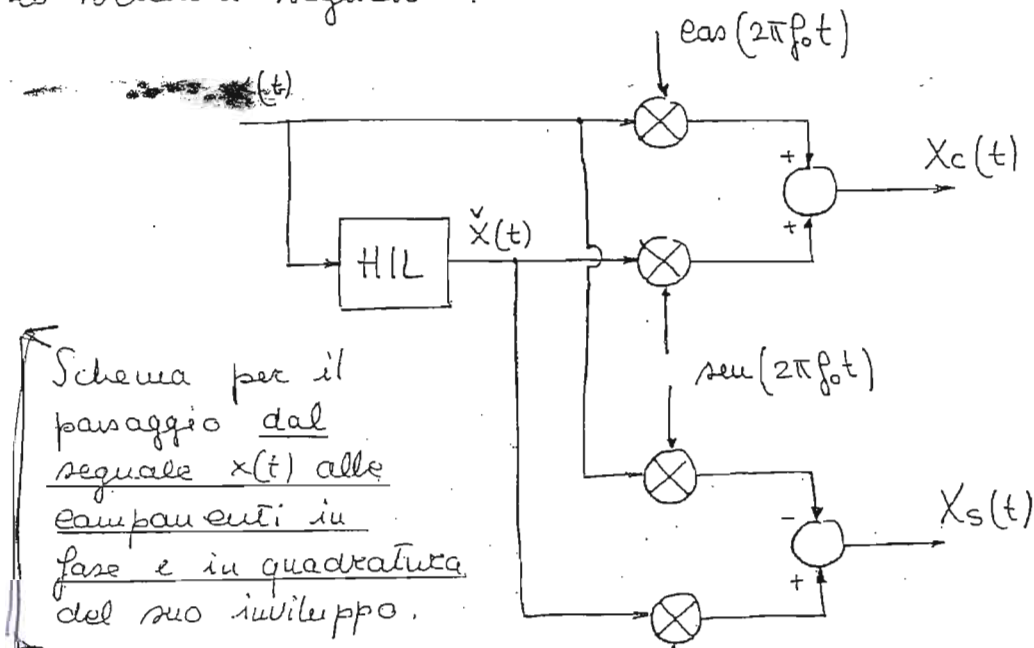 (t)
cos(2πf₀t)
+
Xc(t)
+
HIL
X̌(t)
sen(2πf₀t)
Schema per il
passaggio dal
segnale x(t) alle
componenti in
fase e in quadratura
del suo inviluppo.
-
Xs(t)
+